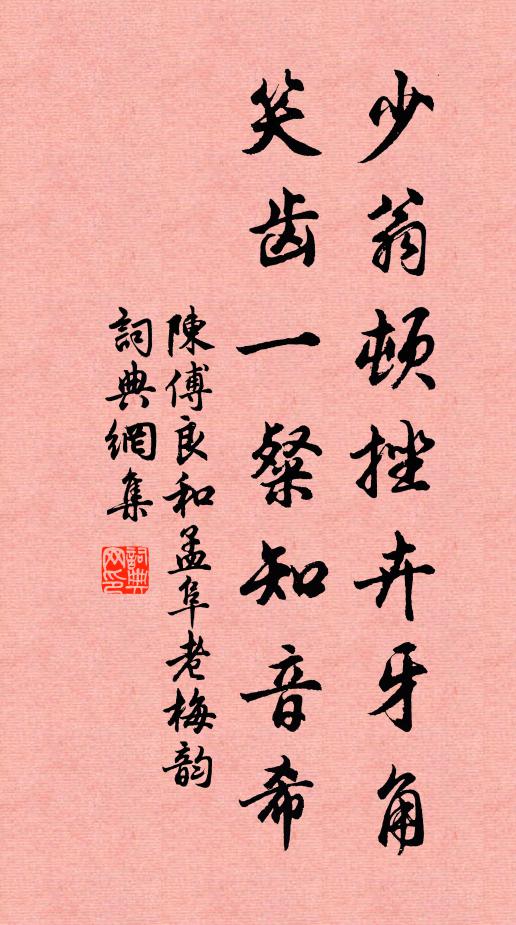 少翁頓挫卉牙角
笑齿一粲知音希
陳傅良和孟阜老梅韵
詞典網集
詞典网印